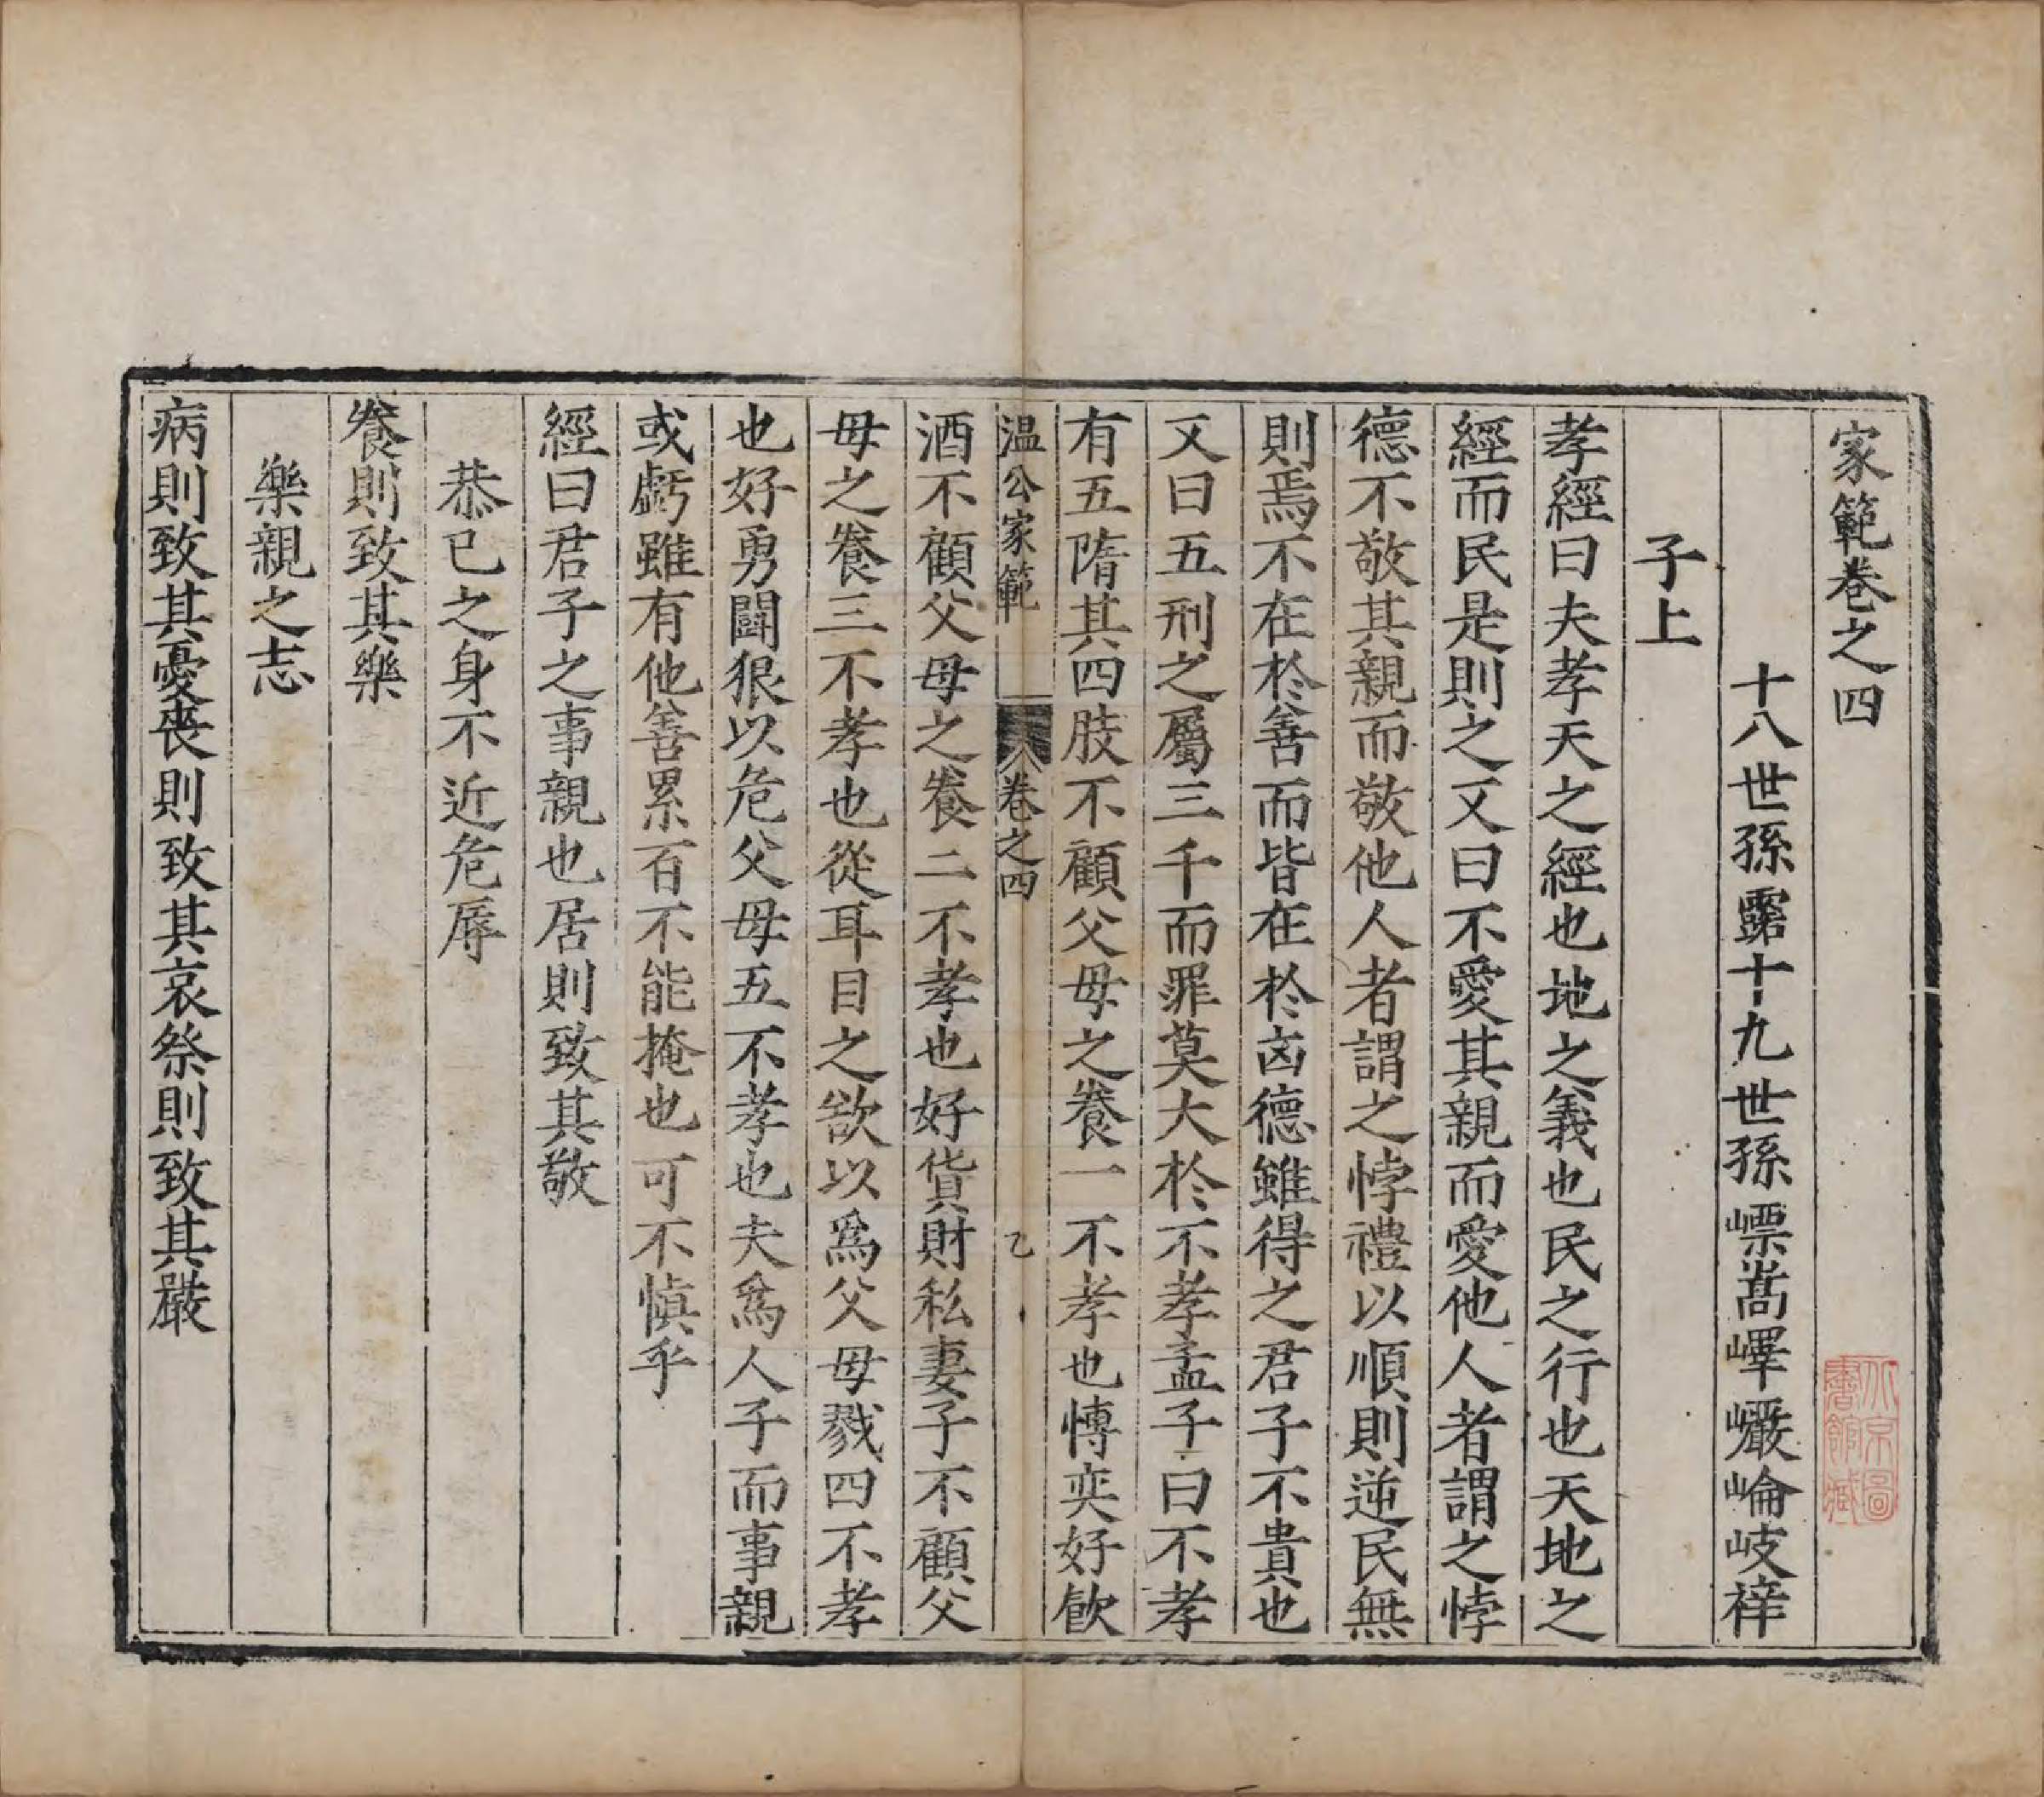 家範卷之四
十八世孫露十九世孫嶛嵩嶧巖崘岐梓
子上
孝經曰夫孝天之經也地之義也民之行也天地之
經而民是則之又曰不愛其親而愛他人者謂之悖
德不敬其親而敬他人者謂之悖禮以順則逆民無
則焉不在於善而皆在於凶德雖得之君子不貴也
又曰五刑之屬三千而罪莫大於不孝孟子曰不孝
有五隋其四肢不顧父母之養一不孝也博奕好飲
温公家範 卷之四 乙
酒不顧父母之養二不孝也好貨財私妻子不顧父
母之養三不孝也從耳目之欲以爲父母戮四不孝
也好勇鬪狠以危父母五不孝也夫爲人子而事親
或虧雖有他善累百不能掩也可不慎乎
經曰君子之事親也居則致其敬
恭已之身不近危辱
養則致其樂
樂親之志
病則致其憂喪則致其哀祭則致其嚴
北京圖
書館藏